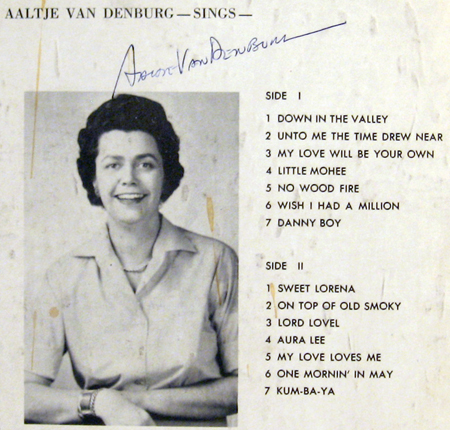 AALTJE VAN DENBURG — SINGS —
Aaltje Van Denburg
SIDE I
1 DOWN IN THE VALLEY
2 UNTO ME THE TIME DREW NEAR
3 MY LOVE WILL BE YOUR OWN
4 LITTLE MOHEE
5 NO WOOD FIRE
6 WISH I HAD A MILLION
7 DANNY BOY
SIDE II
1 SWEET LORENA
2 ON TOP OF OLD SMOKY
3 LORD LOVEL
4 AURA LEE
5 MY LOVE LOVES ME
6 ONE MORNIN' IN MAY
7 KUM-BA-YA